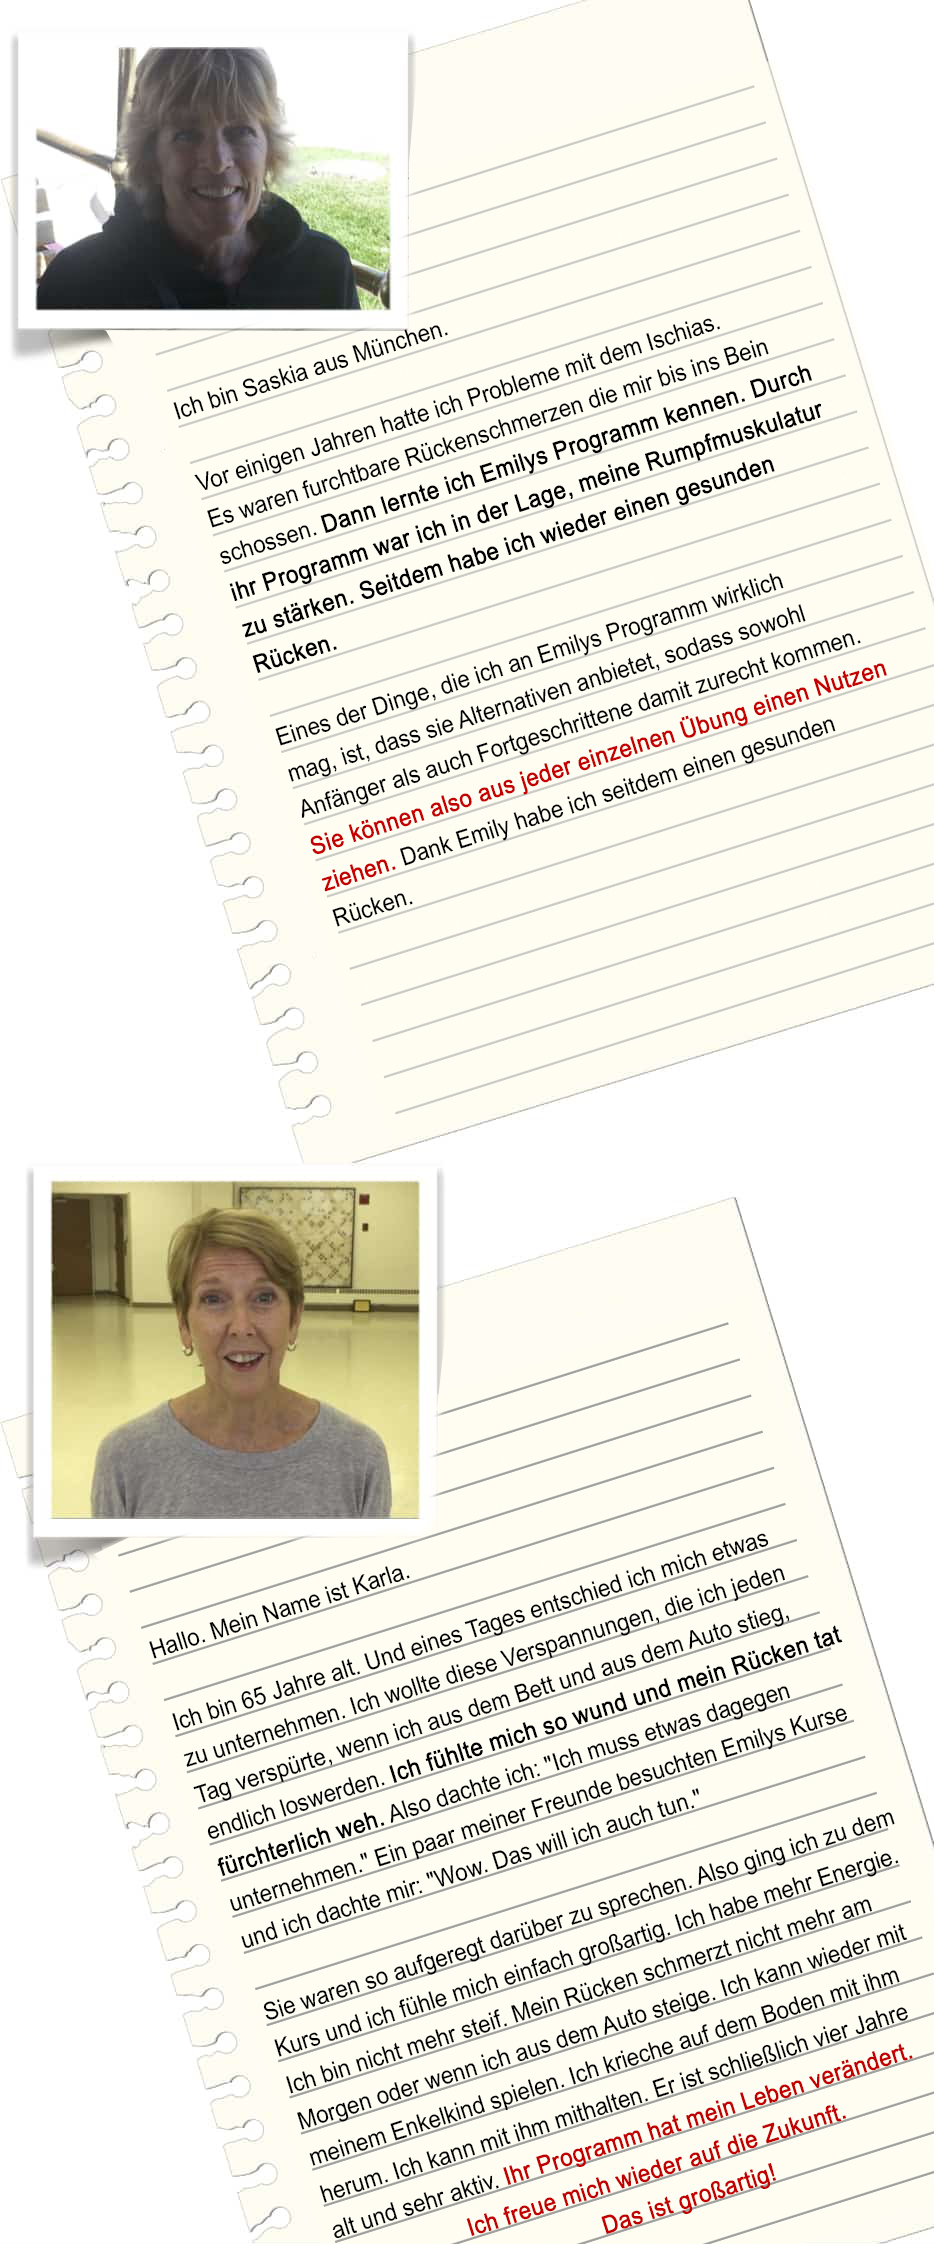 Ich bin Saskia aus München.
Vor einigen Jahren hatte ich Probleme mit dem Ischias.
Es waren furchtbare Rückenschmerzen die mir bis ins Bein
schossen. Dann lernte ich Emilys Programm kennen. Durch
ihr Programm war ich in der Lage, meine Rumpfmuskulatur
zu stärken. Seitdem habe ich wieder einen gesunden
Rücken.
Eines der Dinge, die ich an Emilys Programm wirklich
mag, ist, dass sie Alternativen anbietet, sodass sowohl
Anfänger als auch Fortgeschrittene damit zurecht kommen.
Sie können also aus jeder einzelnen Übung einen Nutzen
ziehen. Dank Emily habe ich seitdem einen gesunden
Rücken.
Hallo. Mein Name ist Karla.
Ich bin 65 Jahre alt. Und eines Tages entschied ich mich etwas
zu unternehmen. Ich wollte diese Verspannungen, die ich jeden
Tag verspürte, wenn ich aus dem Bett und aus dem Auto stieg,
endlich loswerden. Ich fühlte mich so wund und mein Rücken tat
fürchterlich weh. Also dachte ich: "Ich muss etwas dagegen
unternehmen." Ein paar meiner Freunde besuchten Emilys Kurse
und ich dachte mir: "Wow. Das will ich auch tun."
Sie waren so aufgeregt darüber zu sprechen. Also ging ich zu dem
Kurs und ich fühle mich einfach großartig. Ich habe mehr Energie.
Ich bin nicht mehr steif. Mein Rücken schmerzt nicht mehr am
Morgen oder wenn ich aus dem Auto steige. Ich kann wieder mit
meinem Enkelkind spielen. Ich krieche auf dem Boden mit ihm
herum. Ich kann mit ihm mithalten. Er ist schließlich vier Jahre
alt und sehr aktiv. Ihr Programm hat mein Leben verändert.
Ich freue mich wieder auf die Zukunft.
Das ist großartig!